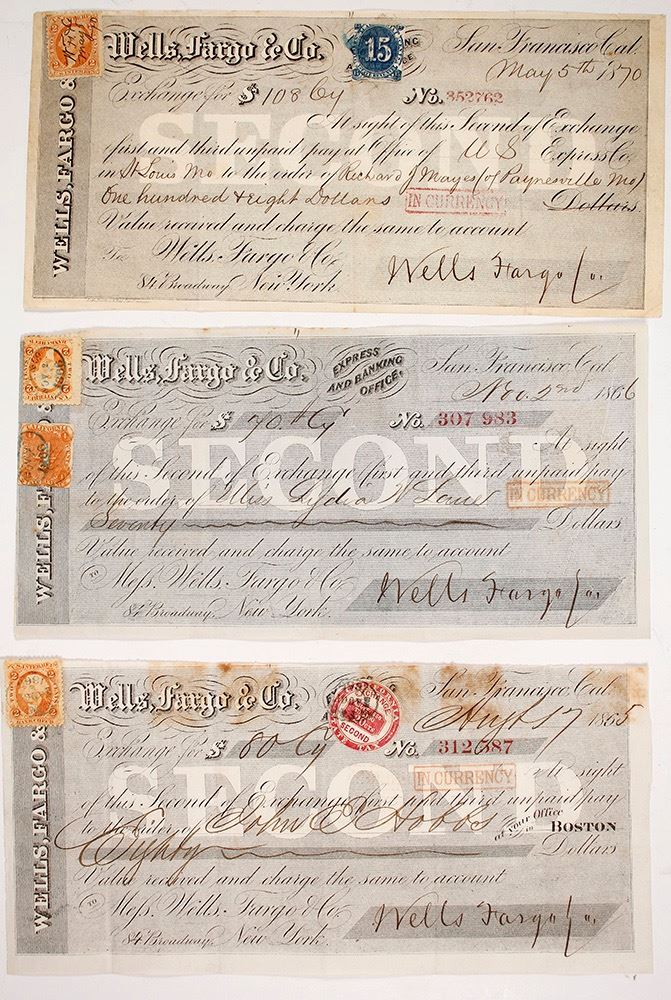 Wells, Fargo & Co.
15
San Francisco Cal.
May 5th 1870
Exchange for $ 108 Cy
No. 352762
SECOND
At sight of this Second of Exchange
first and third unpaid pay at Office of U S Express Co.
in St Louis Mo to the order of Richard J Mayes (of Paynesville Mo)
One hundred & Eight Dollars
IN CURRENCY
Dollars
Value received and charge the same to account
To Wells, Fargo & Co.
84 Broadway, New York.
Wells Fargo Co.
WELLS, FARGO &
Wells, Fargo & Co.
EXPRESS
AND BANKING
OFFICE.
San Francisco, Cal.
Nov. 2nd 1866
Exchange for $ 70 Cy
No. 307 983
SECOND
At sight
of this Second of Exchange first and third unpaid pay
to the order of Miss Lydia
IN CURRENCY
Seventy
Dollars
Value received and charge the same to account
TO Mess. Wells, Fargo & Co.
84 Broadway, New York.
Wells Fargo Co.
WELLS, F
Wells, Fargo & Co.
SECOND
San Francisco, Cal.
Augt 17 1865
Exchange for $ 80 Cy
No. 312587
IN CURRENCY
SECOND
At sight
of this Second of Exchange first and third unpaid pay
to the order of John Hobbs
at your Office in BOSTON
Eighty
Dollars
Value received and charge the same to account
TO Mess. Wells, Fargo & Co.
84 Broadway, New York.
Wells Fargo Co.
WELLS, FARGO &